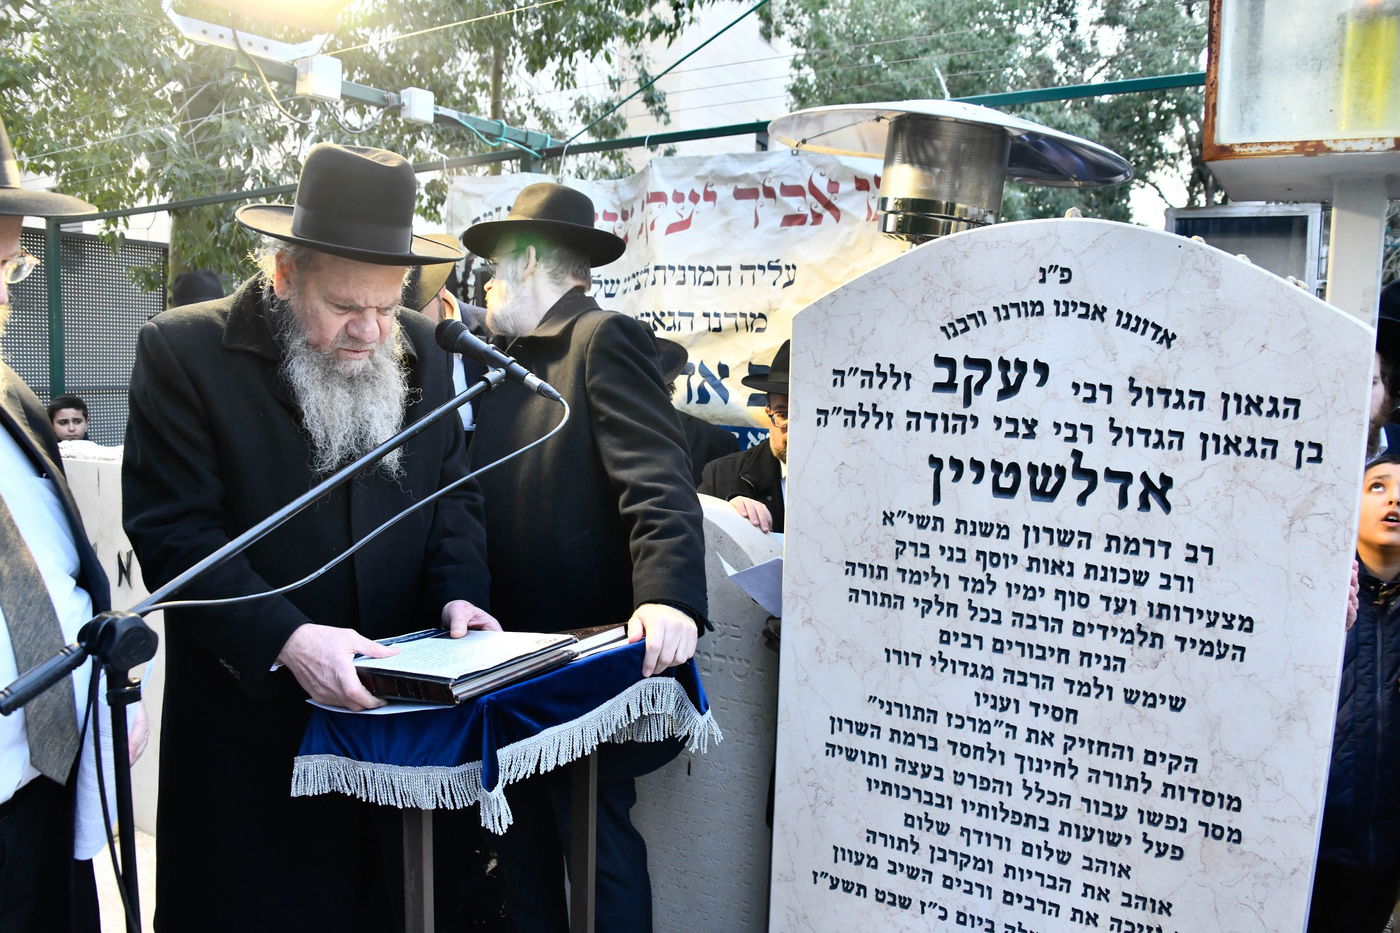 אביר יעקב
עליה המונית לציונו של
מורנו הגאון
פ"נ
אדוננו אבינו מורנו ורבנו
הגאון הגדול רבי יעקב זללה"ה
בן הגאון הגדול רבי צבי יהודה זללה"ה
אדלשטיין
רב דרמת השרון משנת תשי"א
ורב שכונת נאות יוסף בני ברק
מצעירותו ועד סוף ימיו למד ולימד תורה
העמיד תלמידים הרבה בכל חלקי התורה
הניח חיבורים רבים
שימש ולמד הרבה מגדולי דורו
חסיד ועניו
הקים והחזיק את ה"מרכז התורני"
מוסדות לתורה לחינוך ולחסד ברמת השרון
מסר נפשו עבור הכלל והפרט בעצה ותושיה
פעל ישועות בתפלותיו ובברכותיו
אוהב שלום ורודף שלום
אוהב את הבריות ומקרבן לתורה
וזיכה את הרבים ורבים השיב מעוון
ביום כ"ז שבט תשע"ז